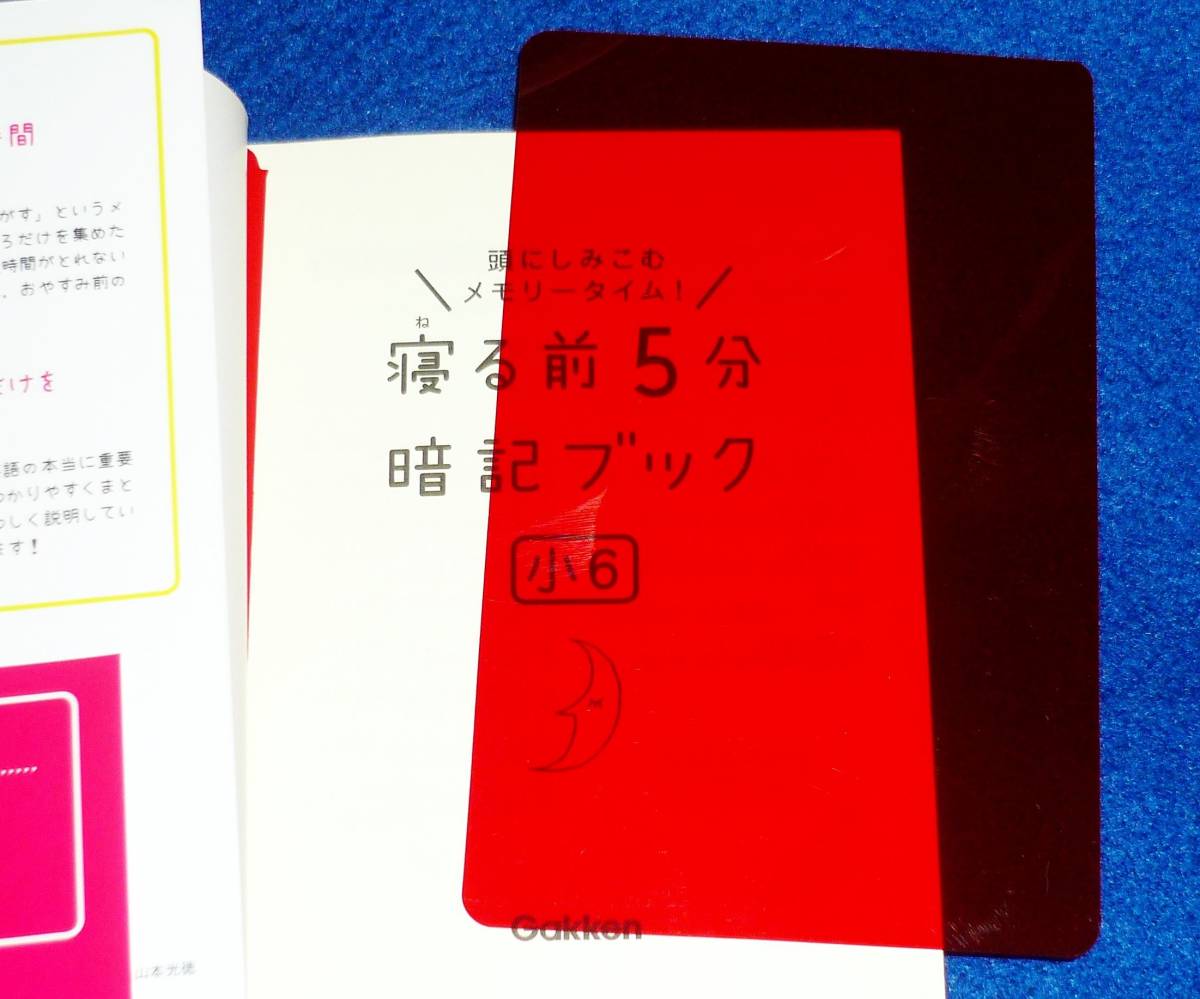 間
がす」というメ
ろだけを集めた
時間がとれない
、おやすみ前の
だけを
語の本当に重要
わかりやすくまと
わしく説明してい
ます!
山本光徳
頭にしみこむ
メモリータイム!
ね
寝る前5分
暗記ブック
小6
Gakken